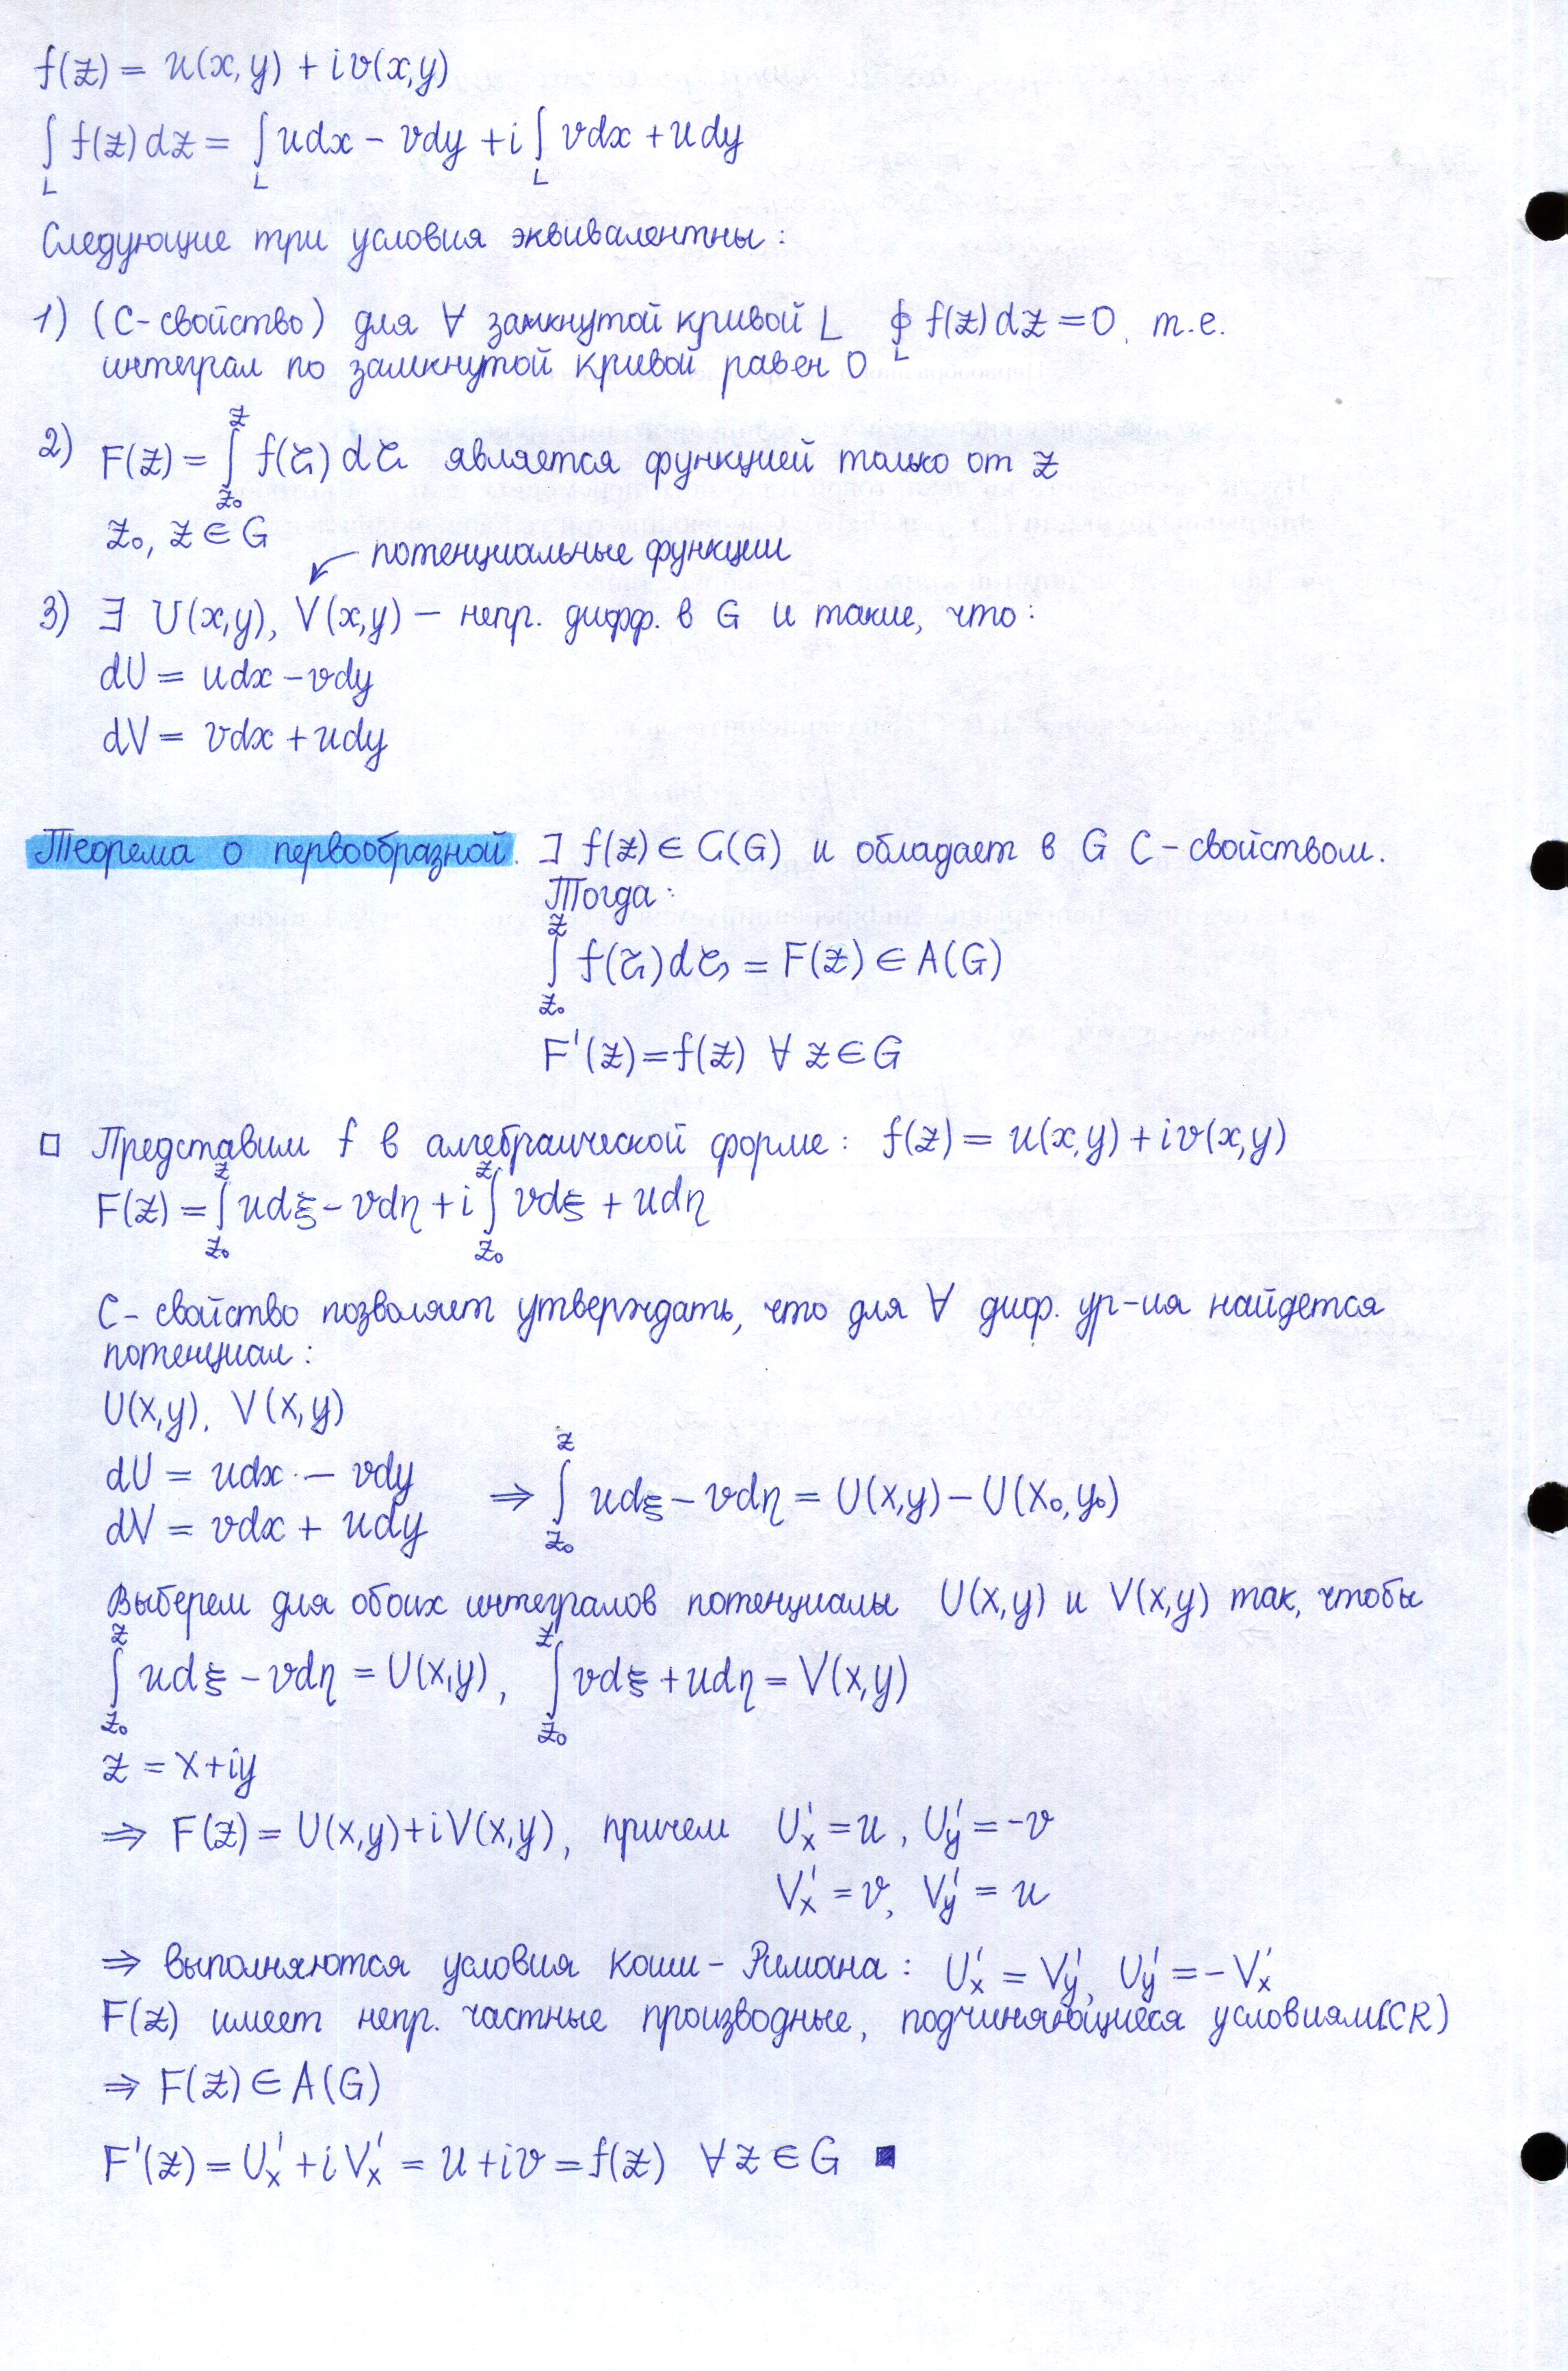 f(z) = u(x,y) + iv(x,y)
∫_L f(z)dz = ∫_L udx − vdy + i∫_L vdx + udy
Следующие три условия эквивалентны:
1) (С-свойство) для ∀ замкнутой кривой L ∮_L f(z)dz = 0, т.е.
интеграл по замкнутой кривой равен 0
2) F(z) = ∫_{z₀}^{z} f(ζ)dζ является функцией только от z
z₀, z ∈ G
потенциальные функции
3) ∃ U(x,y), V(x,y) – непр. дифф. в G и такие, что:
dU = udx − vdy
dV = vdx + udy
Теорема о первообразной. ∃ f(z) ∈ C(G) и обладает в G С-свойством.
Тогда:
∫_{z₀}^{z} f(ζ)dζ = F(z) ∈ A(G)
F'(z) = f(z) ∀ z ∈ G
□ Представим f в алгебраической форме: f(z) = u(x,y) + iv(x,y)
F(z) = ∫_{z₀}^{z} udξ − vdη + i∫_{z₀}^{z} vdξ + udη
С-свойство позволяет утверждать, что для ∀ диф. ур-ия найдется
потенциал:
U(x,y), V(x,y)
dU = udx − vdy
dV = vdx + udy ⇒ ∫_{z₀}^{z} udξ − vdη = U(x,y) − U(x₀,y₀)
Выберем для обоих интегралов потенциалы U(x,y) и V(x,y) так, чтобы
∫_{z₀}^{z} udξ − vdη = U(x,y), ∫_{z₀}^{z} vdξ + udη = V(x,y)
z = x+iy
⇒ F(z) = U(x,y)+iV(x,y), причем U'ₓ = u, U'_y = −v
V'ₓ = v, V'_y = u
⇒ выполняются условия Коши-Римана: U'ₓ = V'_y, U'_y = −V'ₓ
F(z) имеет непр. частные производные, подчиняющиеся условиям(CR)
⇒ F(z) ∈ A(G)
F'(z) = U'ₓ + iV'ₓ = u + iv = f(z) ∀ z ∈ G ■